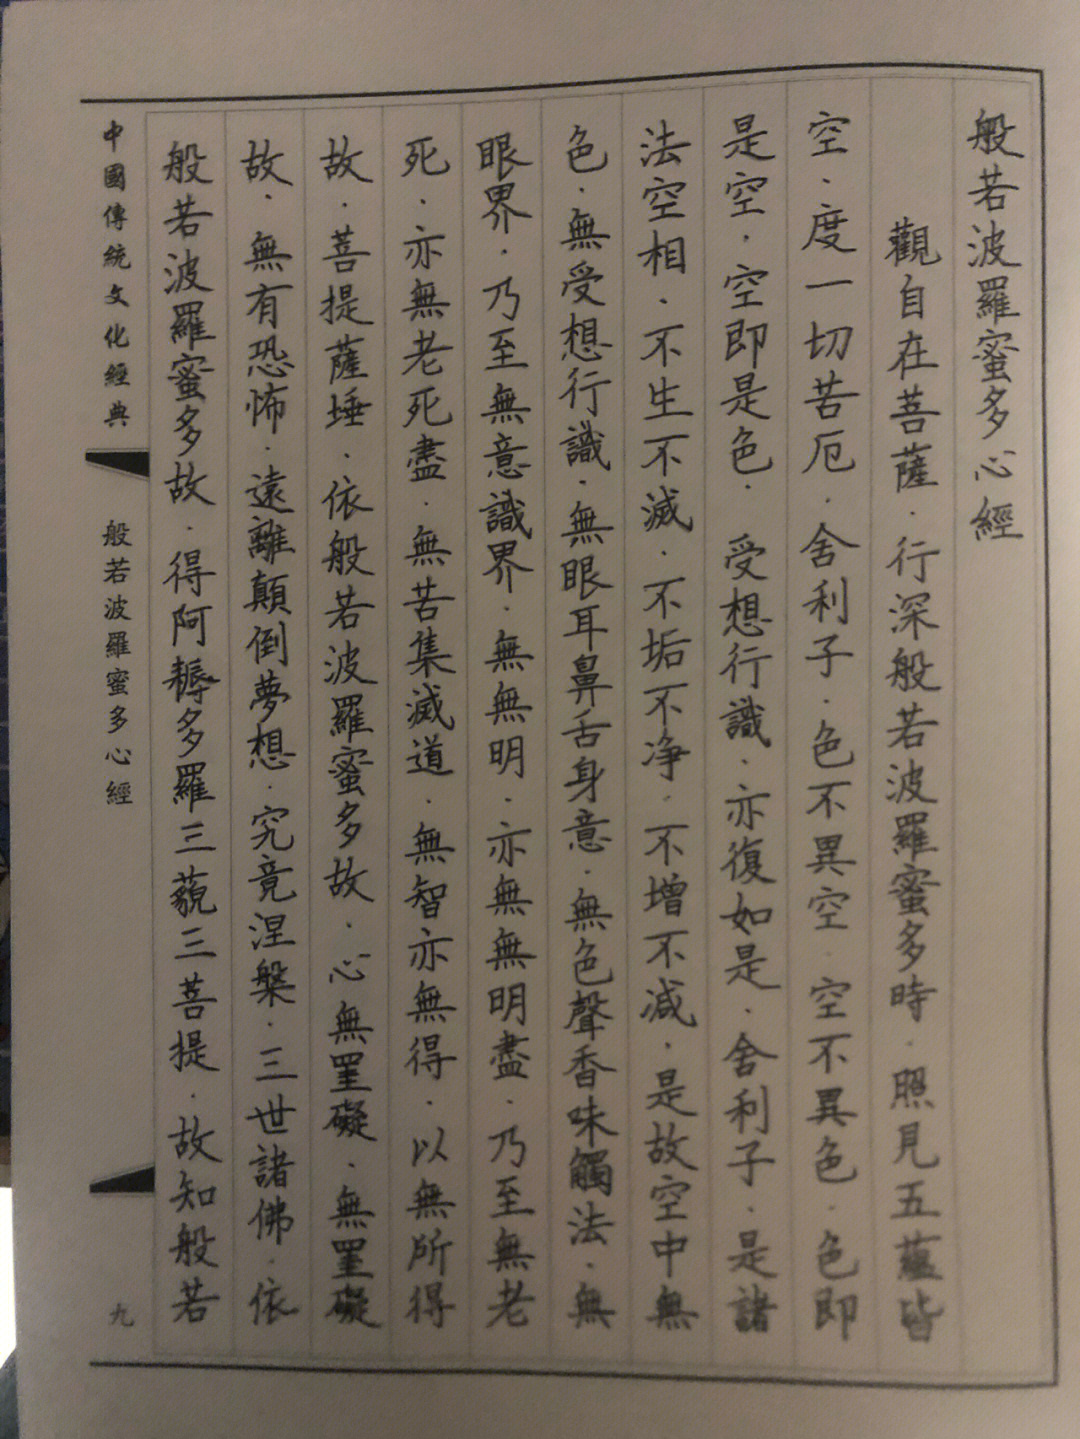 般若波羅蜜多心經
觀自在菩薩．行深般若波羅蜜多時．照見五蘊皆
空．度一切苦厄．舍利子．色不異空．空不異色．色即
是空．空即是色．受想行識．亦復如是．舍利子．是諸
法空相．不生不滅．不垢不净．不增不減．是故空中無
色．無受想行識．無眼耳鼻舌身意．無色聲香味觸法．無
眼界．乃至無意識界．無無明．亦無無明盡．乃至無老
死．亦無老死盡．無苦集滅道．無智亦無得．以無所得
故．菩提薩埵．依般若波羅蜜多故．心無罣礙．無罣礙
故．無有恐怖．遠離顛倒夢想．究竟涅槃．三世諸佛．依
般若波羅蜜多故．得阿耨多羅三藐三菩提．故知般若
中國傳統文化經典
般若波羅蜜多心經
九